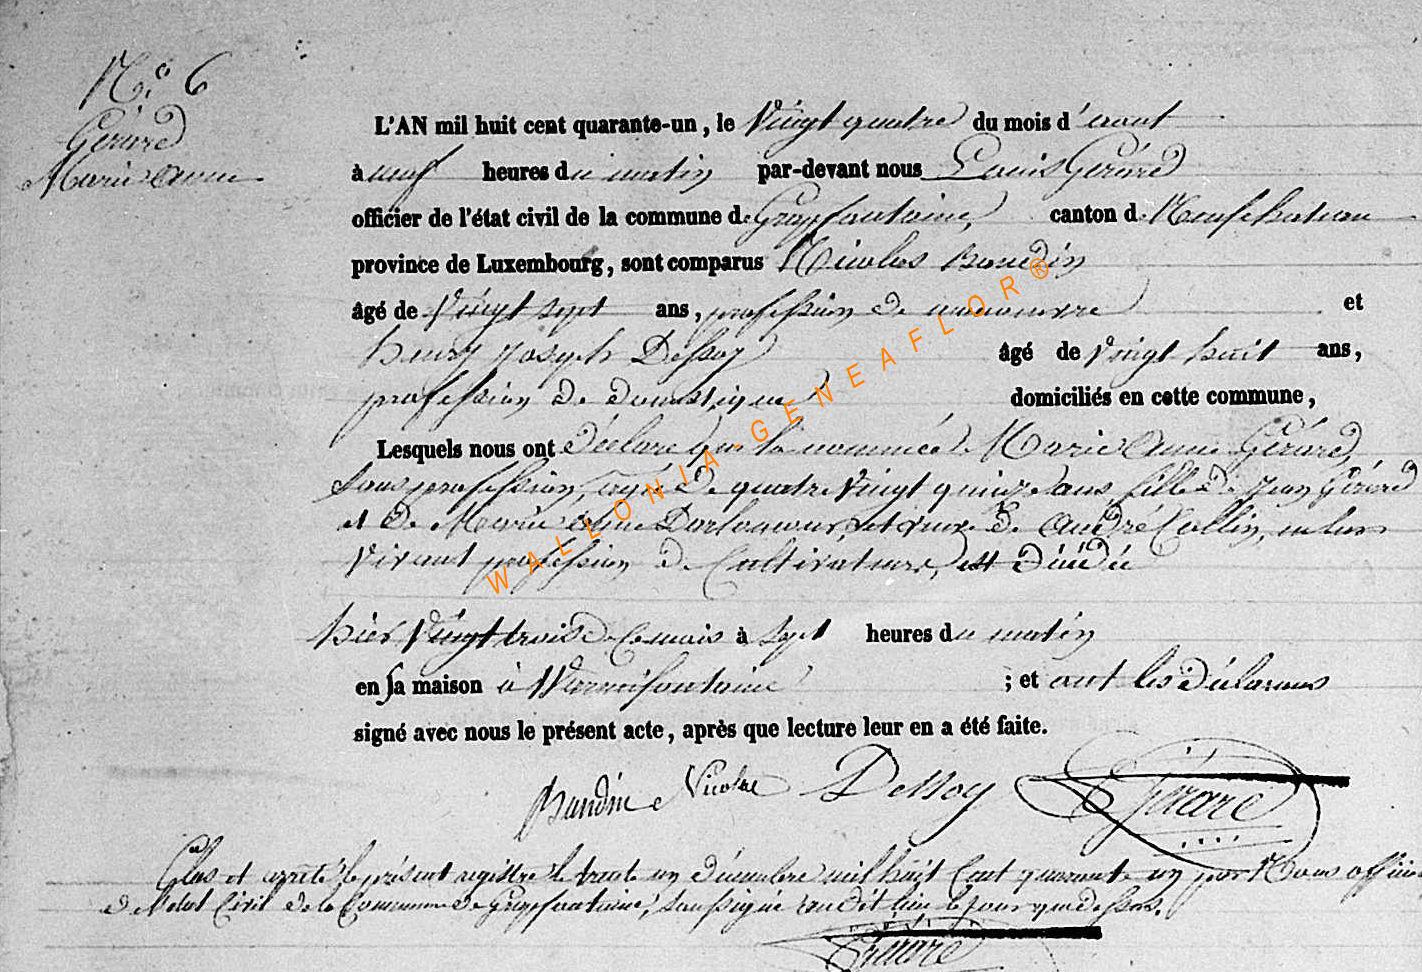 N.° 6
Gérard
Marie anne
L'AN mil huit cent quarante-un, le Vingt quatre du mois d'aout
à neuf heures du matin par-devant nous Louis Gérard
officier de l'état civil de la commune de Grapfontaine, canton de Neufchateau
province de Luxembourg, sont comparus Nicolas baudin
âgé de Vingt sept ans, profession de manoeuvre et
henry Joseph Dessoy âgé de vingt huit ans,
profession de domestique domiciliés en cette commune,
Lesquels nous ont déclaré que la nommée Marie Anne Gérard,
sans profession, agée de quatre Vingt quinze ans, fille de Jean Gérard
et de Marie et veuve de André Collin, en leur
vivant profession de Cultivateurs, est décédée
hier Vingt trois de ce mois à sept heures du matin
en sa maison à Warmifontaine ; et ont les déclarans
signé avec nous le présent acte, après que lecture leur en a été faite.
Baudin Nicolas Dessoy Gérard
Clos et arrêté le présent registre le trente un décembre mil huit Cent quarante un par Nous officier
de l'etat Civil de la Commune de Grapfontaine, soussigné audit lieu le jour que dessus.
Gérard
WALLONIA-GENEAFLOR®